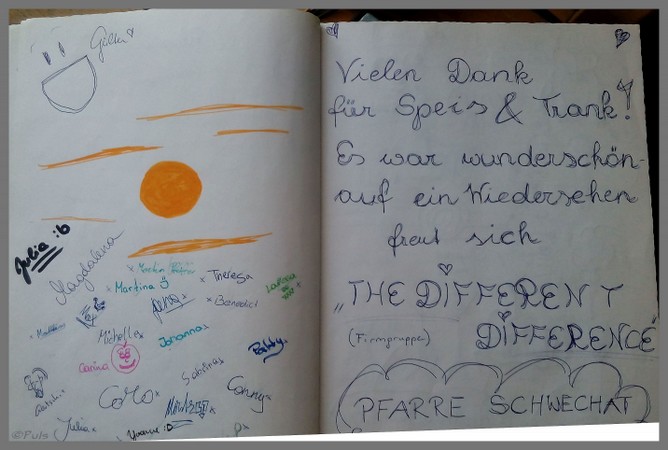 Gilla
Julia :b
Magdalena
Martina
Theresa
Benedict
Michelle
Johanna
Carina
Sabrina
Conny
CoMo
Julia
Yvonne :D
©Fuls
Vielen Dank
für Speis & Trank!
Es war wunderschön-
auf ein Wiedersehen
freut sich
„THE DIFFERENT
(Firmgruppe) DIFFERENCE"
PFARRE SCHWECHAT